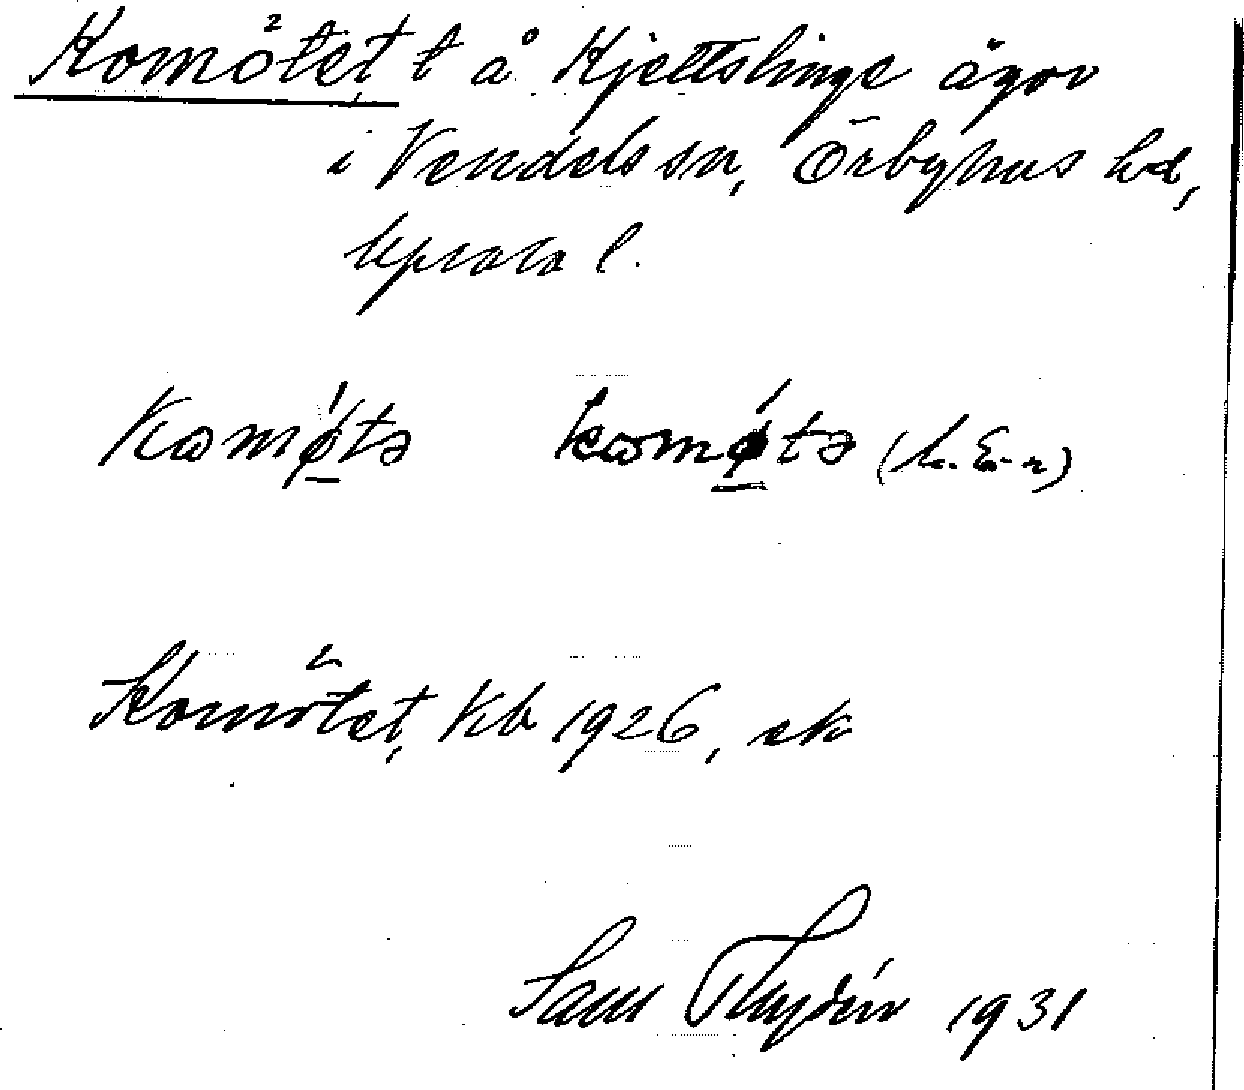 Komötet, t å Kjettslinge ägor
i Vendels sn, Örbyhus hd,
Upsala l.
Kɷmǿtə kɷmǿtə (L. E-r)
Komötet, Kb 1926, ek
Sam Thydén 1931